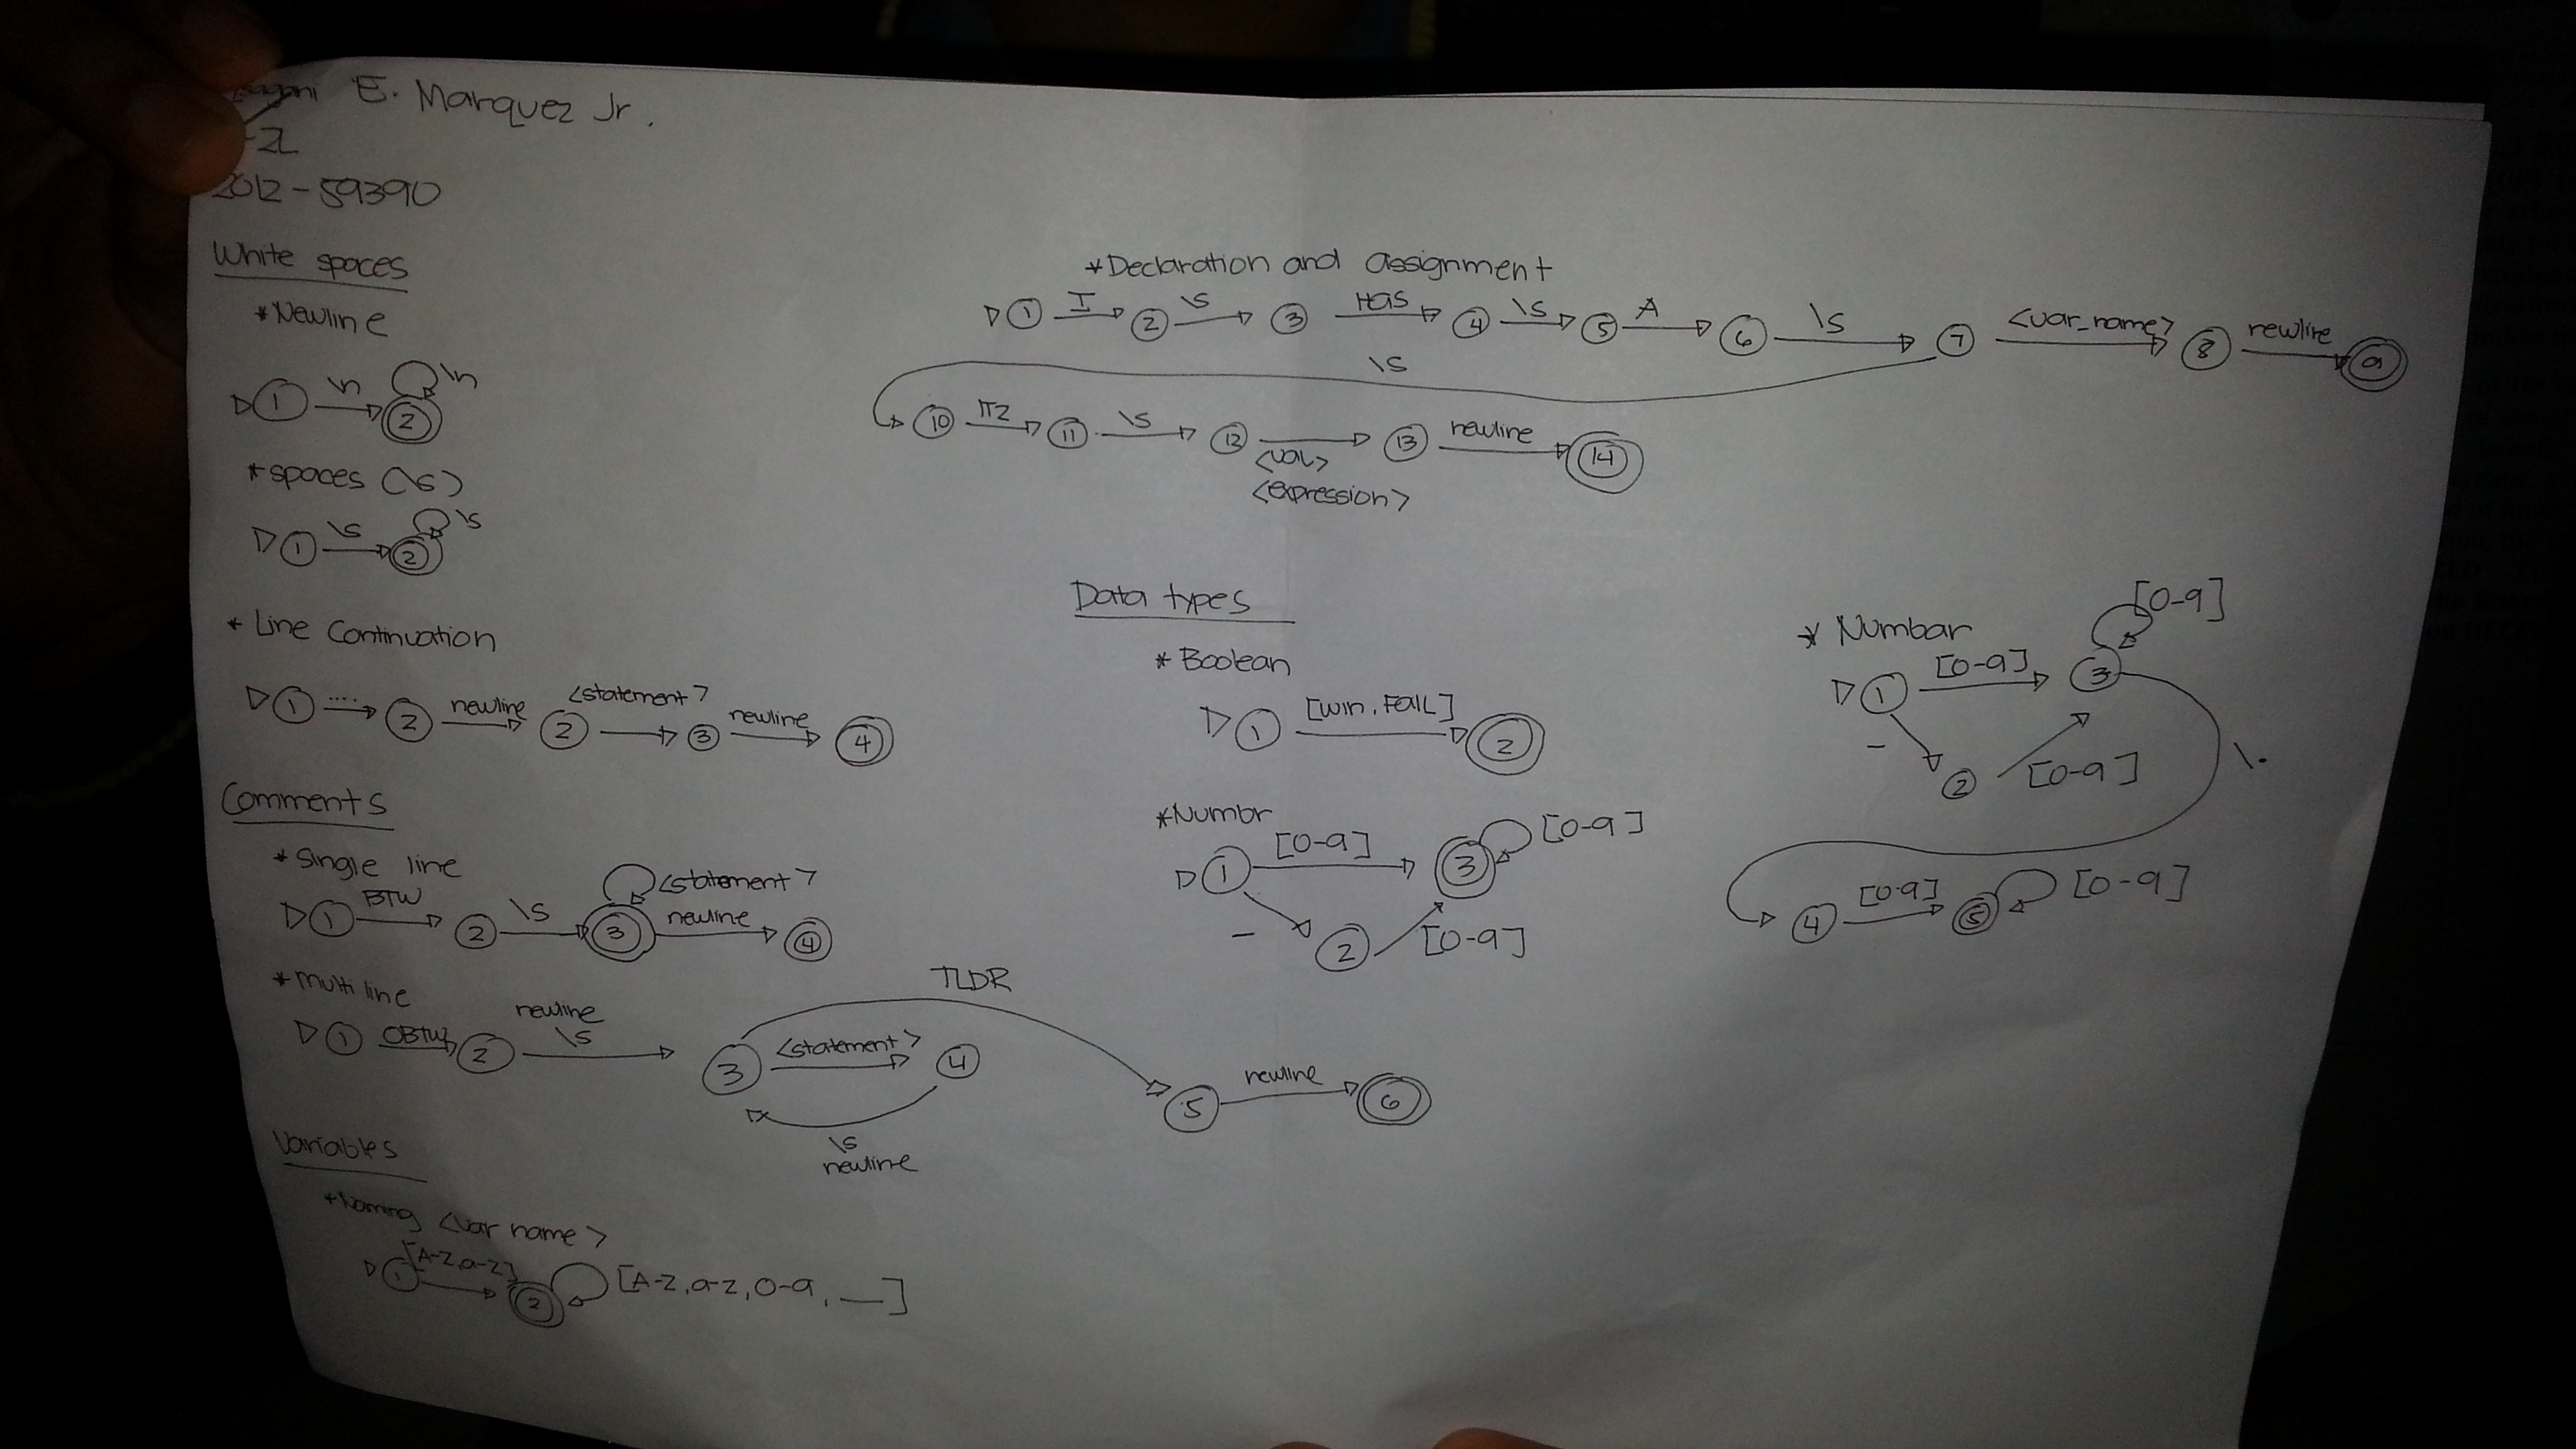 E. Marquez Jr.
-2L
2012-59390
White spaces
*Newline
1 \n 2 \n
*spaces (\s)
1 \s 2 \s
* Line Continuation
1 .... 2 newline 2 <statement> 3 newline 4
Comments
*Single line
1 BTW 2 \s 3 <statement> newline 4
*multi line
1 OBTW 2 newline \s 3 <statement> 4 TLDR 5 newline 6
\s
newline
Variables
*Naming <var name>
1 [A-Z,a-z] 2 [A-Z,a-z,0-9,__]
*Declaration and assignment
1 I 2 \s 3 HAS 4 \s 5 A 6 \s 7 <var_name> 8 newline 9
\s
10 ITZ 11 \s 12 <val> 13 newline 14
<expression>
Data types
*Boolean
1 [WIN,FAIL] 2
*Numbr
1 [0-9] 3 [0-9]
- 2 [0-9]
* Numbar
1 [0-9] 3 [0-9]
- 2 [0-9] \.
4 [0-9] 5 [0-9]